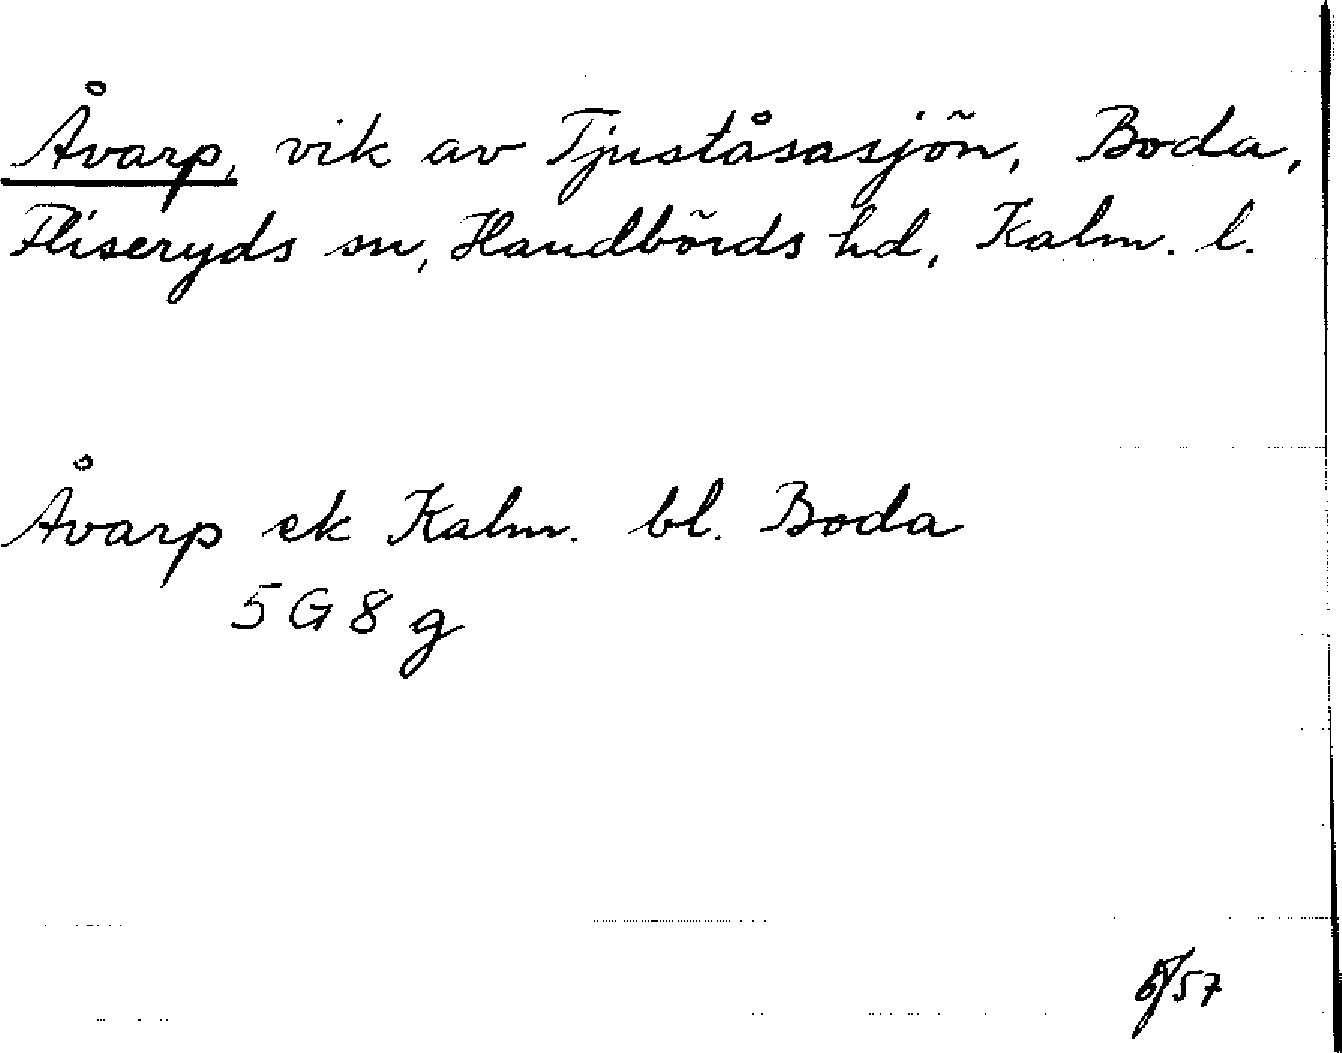 Åvarp, vik av Tjuståsasjön, Boda,
Fliseryds sn, Handbörds hd, Kalm. l.
Åvarp ek Kalm. bl. Boda
5 G 8 g
6/57